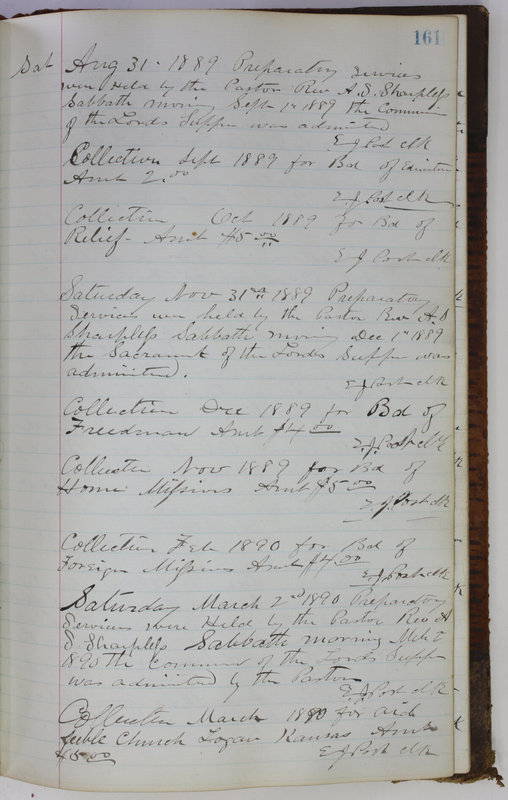 161
Sat Aug 31 - 1889 Preparatory Services
were Held by the Pastor Rev A. S. Sharpless
Sabbath morning Sept 1st 1889 the Commun
of the Lords Supper was admited
E J Post clk
Collection Sept 1889 for Bd of
Amt 2.00
E. J. Post clk
Collection Oct 1889 for Bd of
Relief - Amt $5 00
E J Post clk
Saturday Nov 31st 1889 Preparatory
Services were held by the Pastor Rev A. S
Sharpless Sabbath morning Dec 1st 1889
the Sacrament of the Lords Supper was
admitted.
E J Post clk
Collection Dec 1889 for Bd of
Freedman Amt $4 00
E. J. Post clk
Collection Nov 1889 for Bd of
Home Missions Amt $5 00
E. J. Post clk
Collection Feb 1890 for Bd of
Foreign Missions Amt $4 00
E. J. Post clk
Saturday March 2nd 1890 Preparatory
Services were Held by the Pastor Rev A
S. Sharpless Sabbath morning
1890 the Commun of the Lords Supper
was admited by the Pastor
E J Post clk
Collection March 1890 for aid
feeble Church Logan Kansas Amt
$5 00 E J Post clk